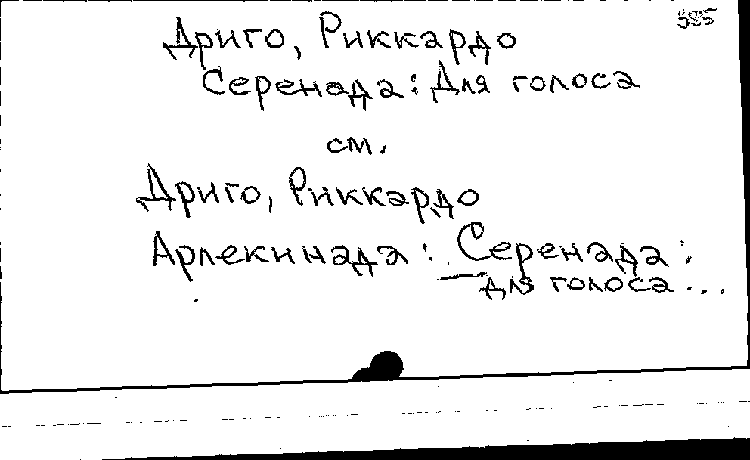 585
Дриго, Риккардо
Серенада: Для голоса
см.
Дриго, Риккардо
Арлекинада: Серенада:
для голоса...